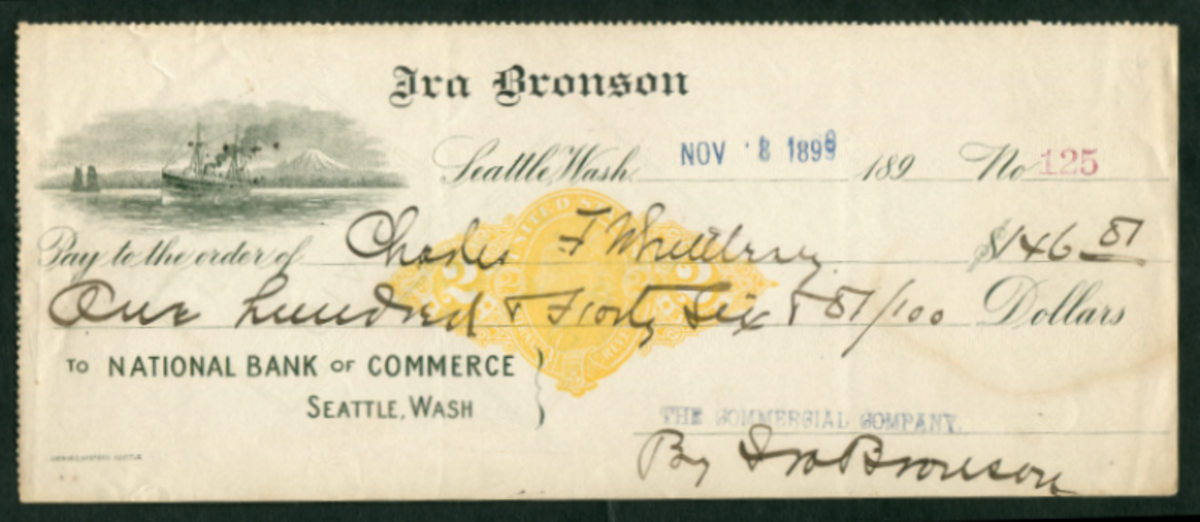 Ira Bronson
Seattle, Wash. NOV 8 1899 189 No 125
Pay to the order of Charles F $146 81
One hundred & Forty Six & 81/100 Dollars
UNITED STATES
2 2
TO NATIONAL BANK OF COMMERCE
SEATTLE, WASH
THE COMMERCIAL COMPANY.
By Ira Bronson